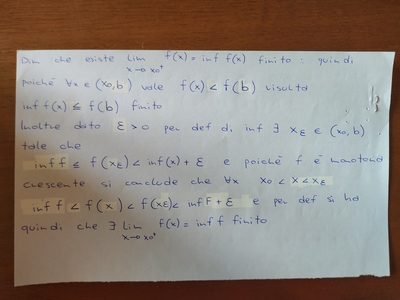 Dim che esiste lim f(x) = inf f(x) finito : quindi
x→x0+
poiché ∀x ∈ (x0,b) vale f(x) < f(b) risulta
inf f(x) ≤ f(b) finito
Inoltre dato ε > 0 per def di inf ∃ xε ∈ (x0, b)
tale che
inf f ≤ f(xε) < inf f(x) + ε e poiché f è monotona
crescente si conclude che ∀x x0 < x < xε
inf f < f(x) < f(xε) < inf F + ε e per def si ha
quindi che ∃ lim f(x) = inf f finito
x→x0+